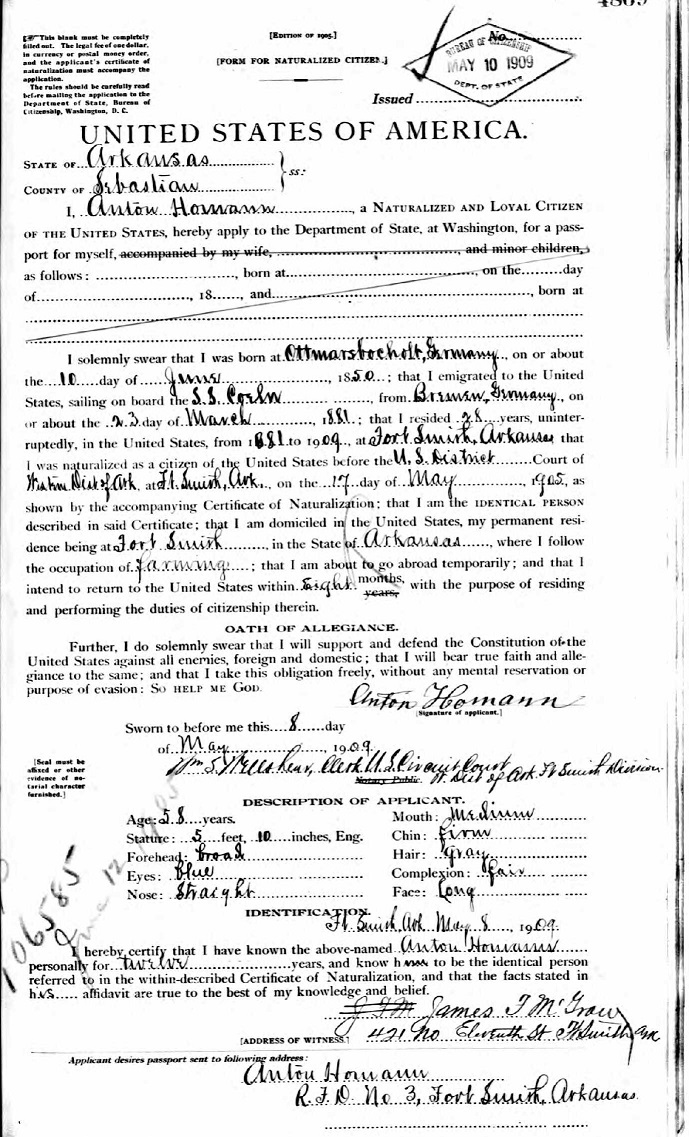 4869
This blank must be completely
filled out. The legal fee of one dollar,
in currency or postal money order,
and the applicant's certificate of
naturalization must accompany the
application.
The rules should be carefully read
before mailing the application to the
Department of State, Bureau of
Citizenship, Washington, D. C.
[EDITION OF 1905.]
[FORM FOR NATURALIZED CITIZEN.]
No.
BUREAU OF CITIZENSHIP
MAY 10 1909
DEPT. OF STATE
Issued
UNITED STATES OF AMERICA.
STATE OF Arkansas
COUNTY OF Sebastian
ss:
I, Anton Homann, a NATURALIZED AND LOYAL CITIZEN
OF THE UNITED STATES, hereby apply to the Department of State, at Washington, for a pass-
port for myself, accompanied by my wife, , and minor children,
as follows: , born at , on the day
of , 18 , and , born at
I solemnly swear that I was born at Ottmarsbocholt, Germany, on or about
the 10 day of June, 1850; that I emigrated to the United
States, sailing on board the S.S. Coeln, from Bremen, Germany, on
or about the 23 day of March, 1881; that I resided 28 years, uninter-
ruptedly, in the United States, from 1881 to 1909, at Fort Smith, Arkansas that
I was naturalized as a citizen of the United States before the U.S. District Court of
Western Dist of Ark. at Ft. Smith, Ark., on the 17 day of May, 1905, as
shown by the accompanying Certificate of Naturalization; that I am the IDENTICAL PERSON
described in said Certificate; that I am domiciled in the United States, my permanent resi-
dence being at Fort Smith, in the State of Arkansas, where I follow
the occupation of farming; that I am about to go abroad temporarily; and that I
intend to return to the United States within Eight months, years, with the purpose of residing
and performing the duties of citizenship therein.
OATH OF ALLEGIANCE.
Further, I do solemnly swear that I will support and defend the Constitution of the
United States against all enemies, foreign and domestic; that I will bear true faith and alle-
giance to the same; and that I take this obligation freely, without any mental reservation or
purpose of evasion: SO HELP ME GOD.
Anton Homann
[Signature of applicant.]
Sworn to before me this 8 day
of May, 1909
Clerk U.S. Circuit Court
W. Dist of Ark. Ft Smith Division
Notary Public
[Seal must be
affixed or other
evidence of no-
tarial character
furnished.]
DESCRIPTION OF APPLICANT.
Age: 58 years.
Mouth: Medium
Stature: 5 feet, 10 inches, Eng.
Chin: Firm
Forehead: broad
Hair: Gray
Eyes: blue
Complexion: Fair
Nose: Straight
Face: Long
106585
IDENTIFICATION.
Ft. Smith Ark May 8, 1909
I hereby certify that I have known the above-named Anton Homann
personally for twelve years, and know him to be the identical person
referred to in the within-described Certificate of Naturalization, and that the facts stated in
his affidavit are true to the best of my knowledge and belief.
James F McGraw
[ADDRESS OF WITNESS] 421 No Eleventh St Ft Smith Ark
Applicant desires passport sent to following address:
Anton Homann
R.F.D. No 3, Fort Smith, Arkansas